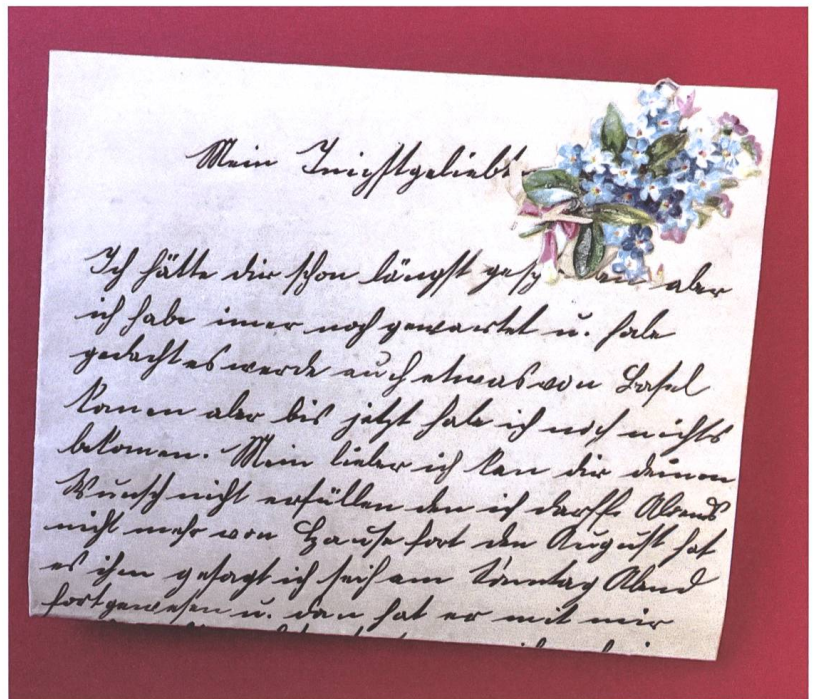 Mein Innigstgeliebt
Ich hätte dir schon längst aber
ich habe imer noch gewartet u. habe
gedacht es werde auch etwas von Basel
komen aber bis jetzt habe ich noch nichts
bekomen. Mein lieber ich kan dir deinen
Wunsch nicht erfüllen den ich darffe Abends
nicht mehr von Hause fort den August hat
es ihm gesagt ich sei am Sonntag Abend
fortgewesen u. dan hat er mit mir